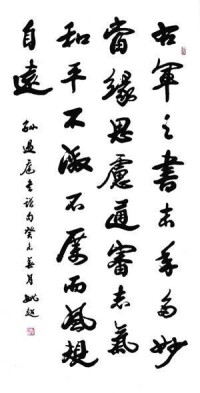 右軍之書末年多妙
當緣思慮通審志氣
和平不激不厲而風規
自遠
孫過庭書譜句癸未春月